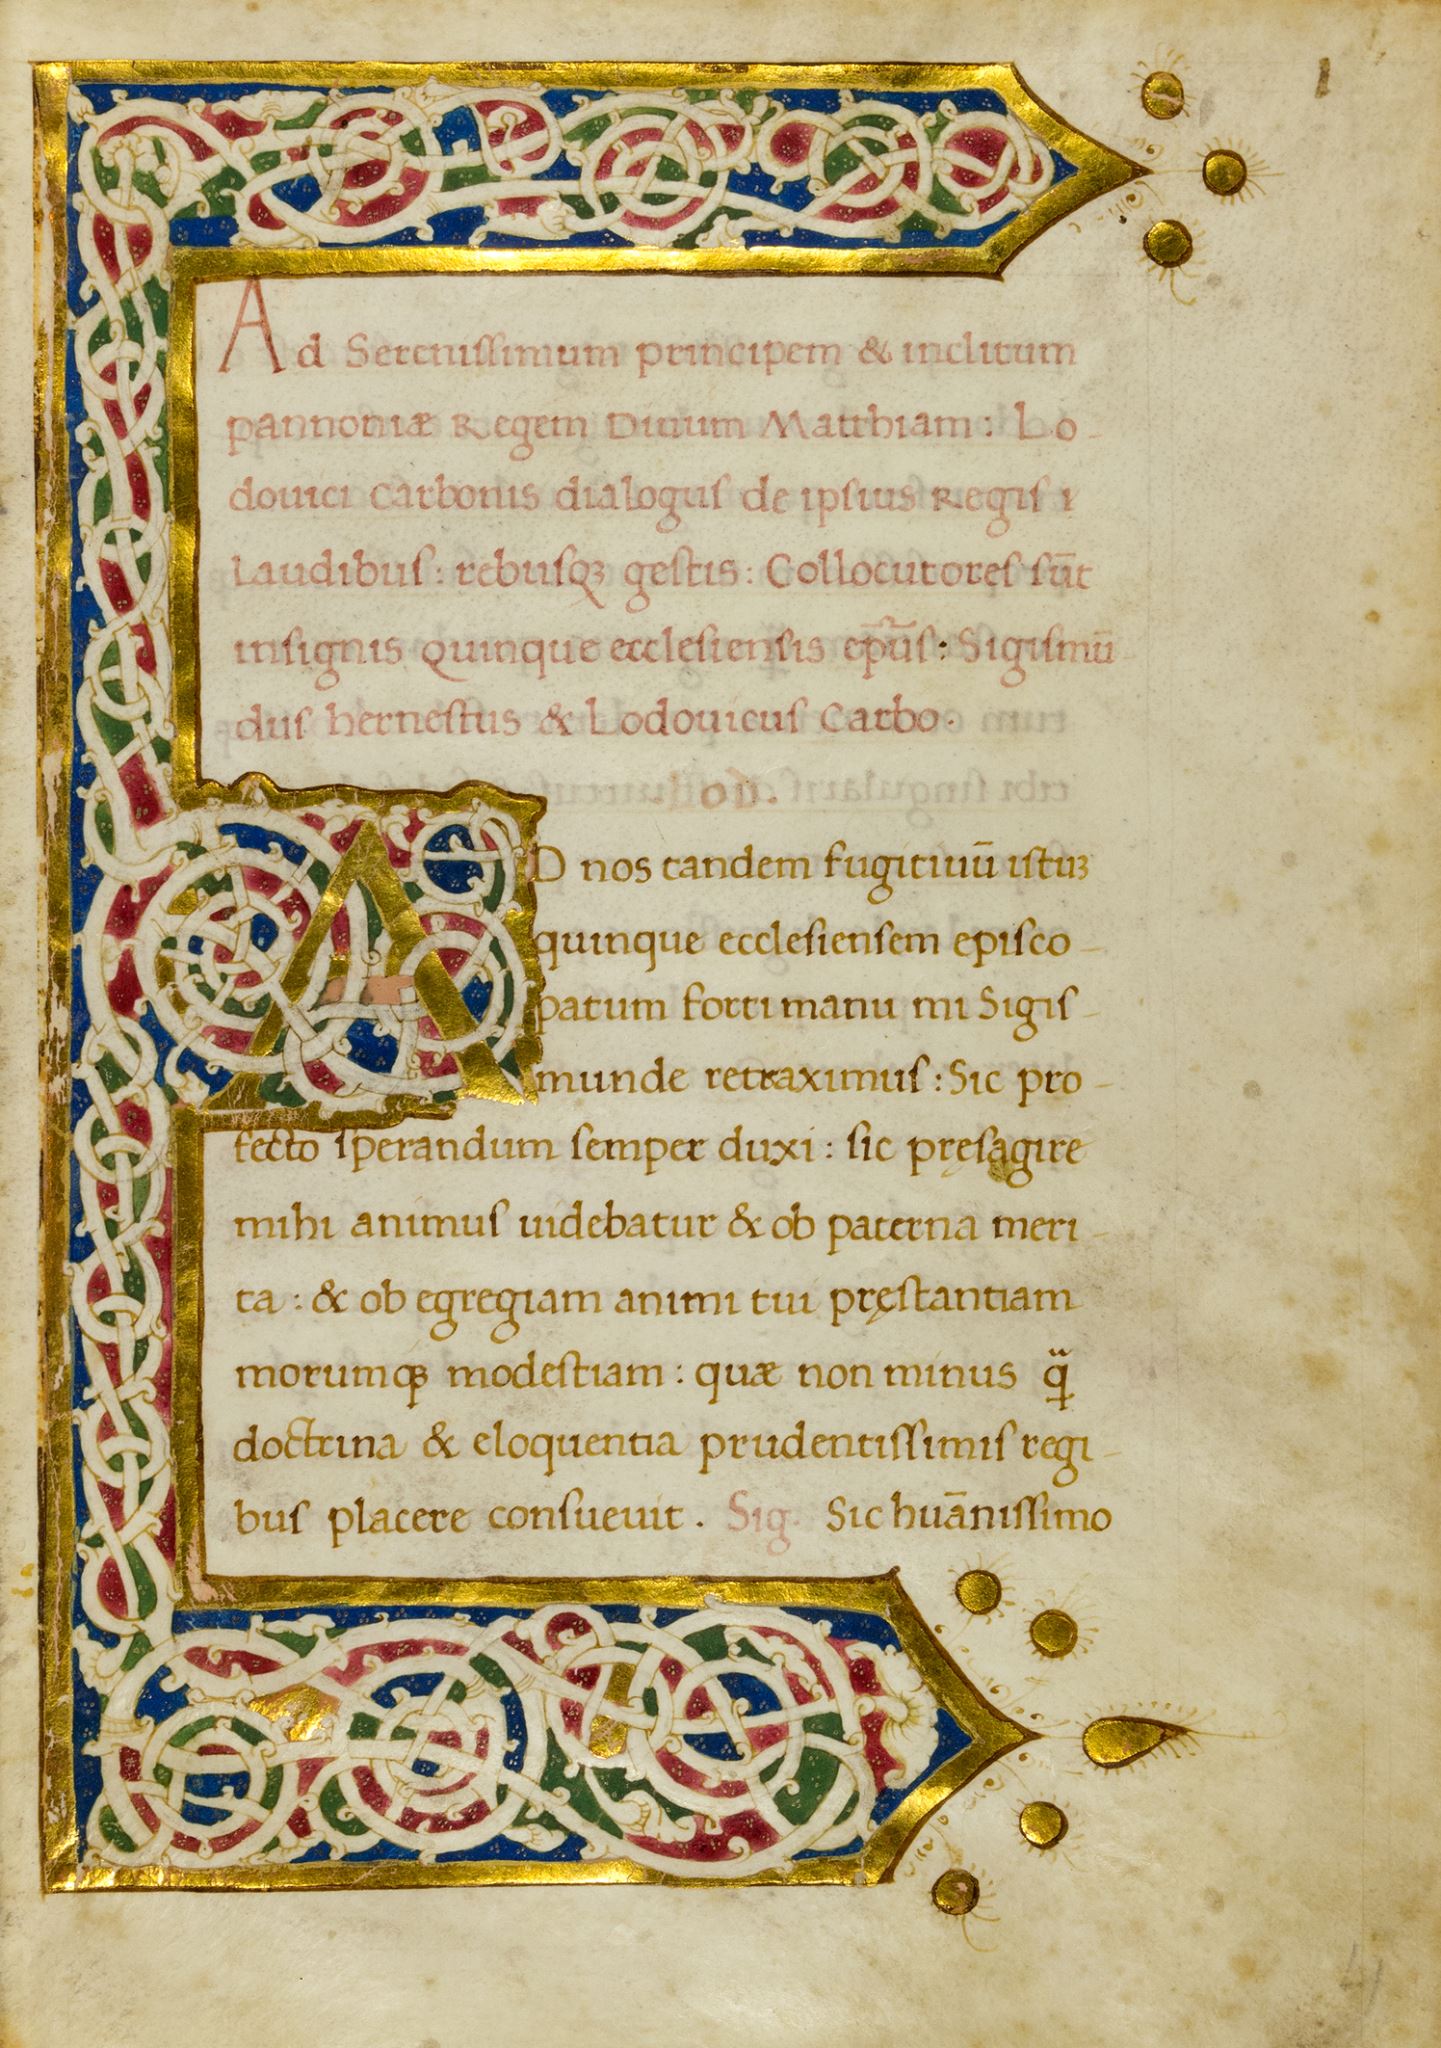 Ad Serenissimum principem & inclitum
pannoniæ Regem Diuum Matthiam: Lo-
douici Carbonis dialogus de ipsius Regis
Laudibus: rebusqꝫ gestis: Collocutores sūt
insignis Quinque ecclesiensis ep̄us: Sigismū
dus hernestus & Lodouicus Carbo.
.Lod.
AD nos tandem fugitiuū istuꝫ
quinque ecclesiensem episco-
patum forti manu mi Sigis-
munde retraximus: Sic pro-
fecto sperandum semper duxi: sic pręsagire
mihi animus uidebatur & ob paterna meri-
ta: & ob egregiam animi tui pręstantiam
morumqꝫ modestiam: quæ non minus q̄
doctrina & eloquentia prudentissimis regi-
bus placere consueuit. Sig. Sic huānissimo